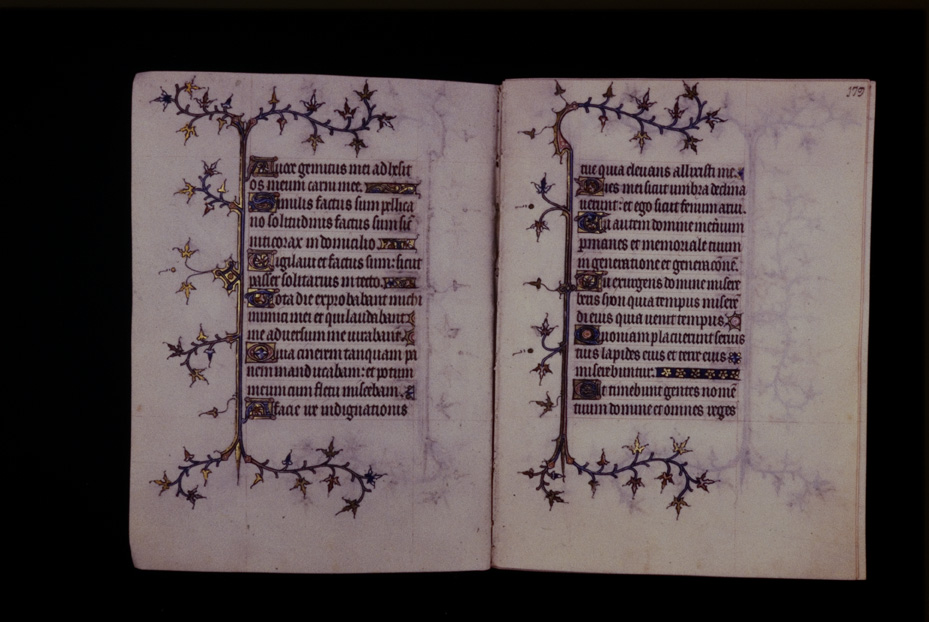 A uoce gemitus mei adhesit
os meum carni mee.
Similis factus sum pellica
no solitudinis factus sum sic̄
niticorax in domicilio
Uigilaui et factus sum: sicut
passer solitarius in tecto.
Tota die exprobabant michi
inimici mei et qui laudabant
me aduersum me iurabant
Quia cinerem tanquam pa
nem manducabam: et potum
meum cum fletu miscebam.
A facie ire indignationis
173
tue quia eleuans allisisti me.
Dies mei sicut umbra declina
uerunt: et ego sicut fenum arui.
Tu autem domine in eternum
permanes et memoriale tuum
in generatione et generacōnē.
Tu exurgens domine misere
beris syon quia tempus miserē
di eius quia uenit tempus.
Quoniam placuerunt seruis
tuis lapides eius et terre eius
miserebuntur.
Et timebunt gentes nomē
tuum domine et omnes reges